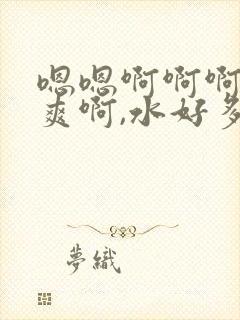 嗯嗯啊啊啊
爽啊,水好多
夢織